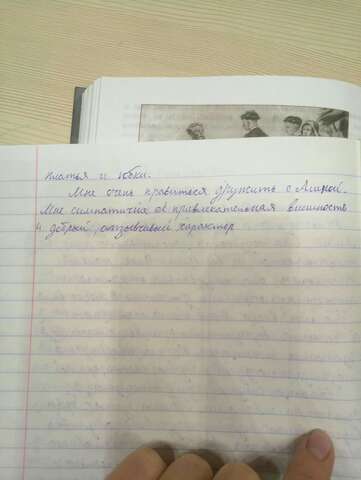 платья и юбки.
Мне очень нравиться дружить с Алиной.
Мне симпатична её привлекательная внешность
и добрый, отзывчивый характер